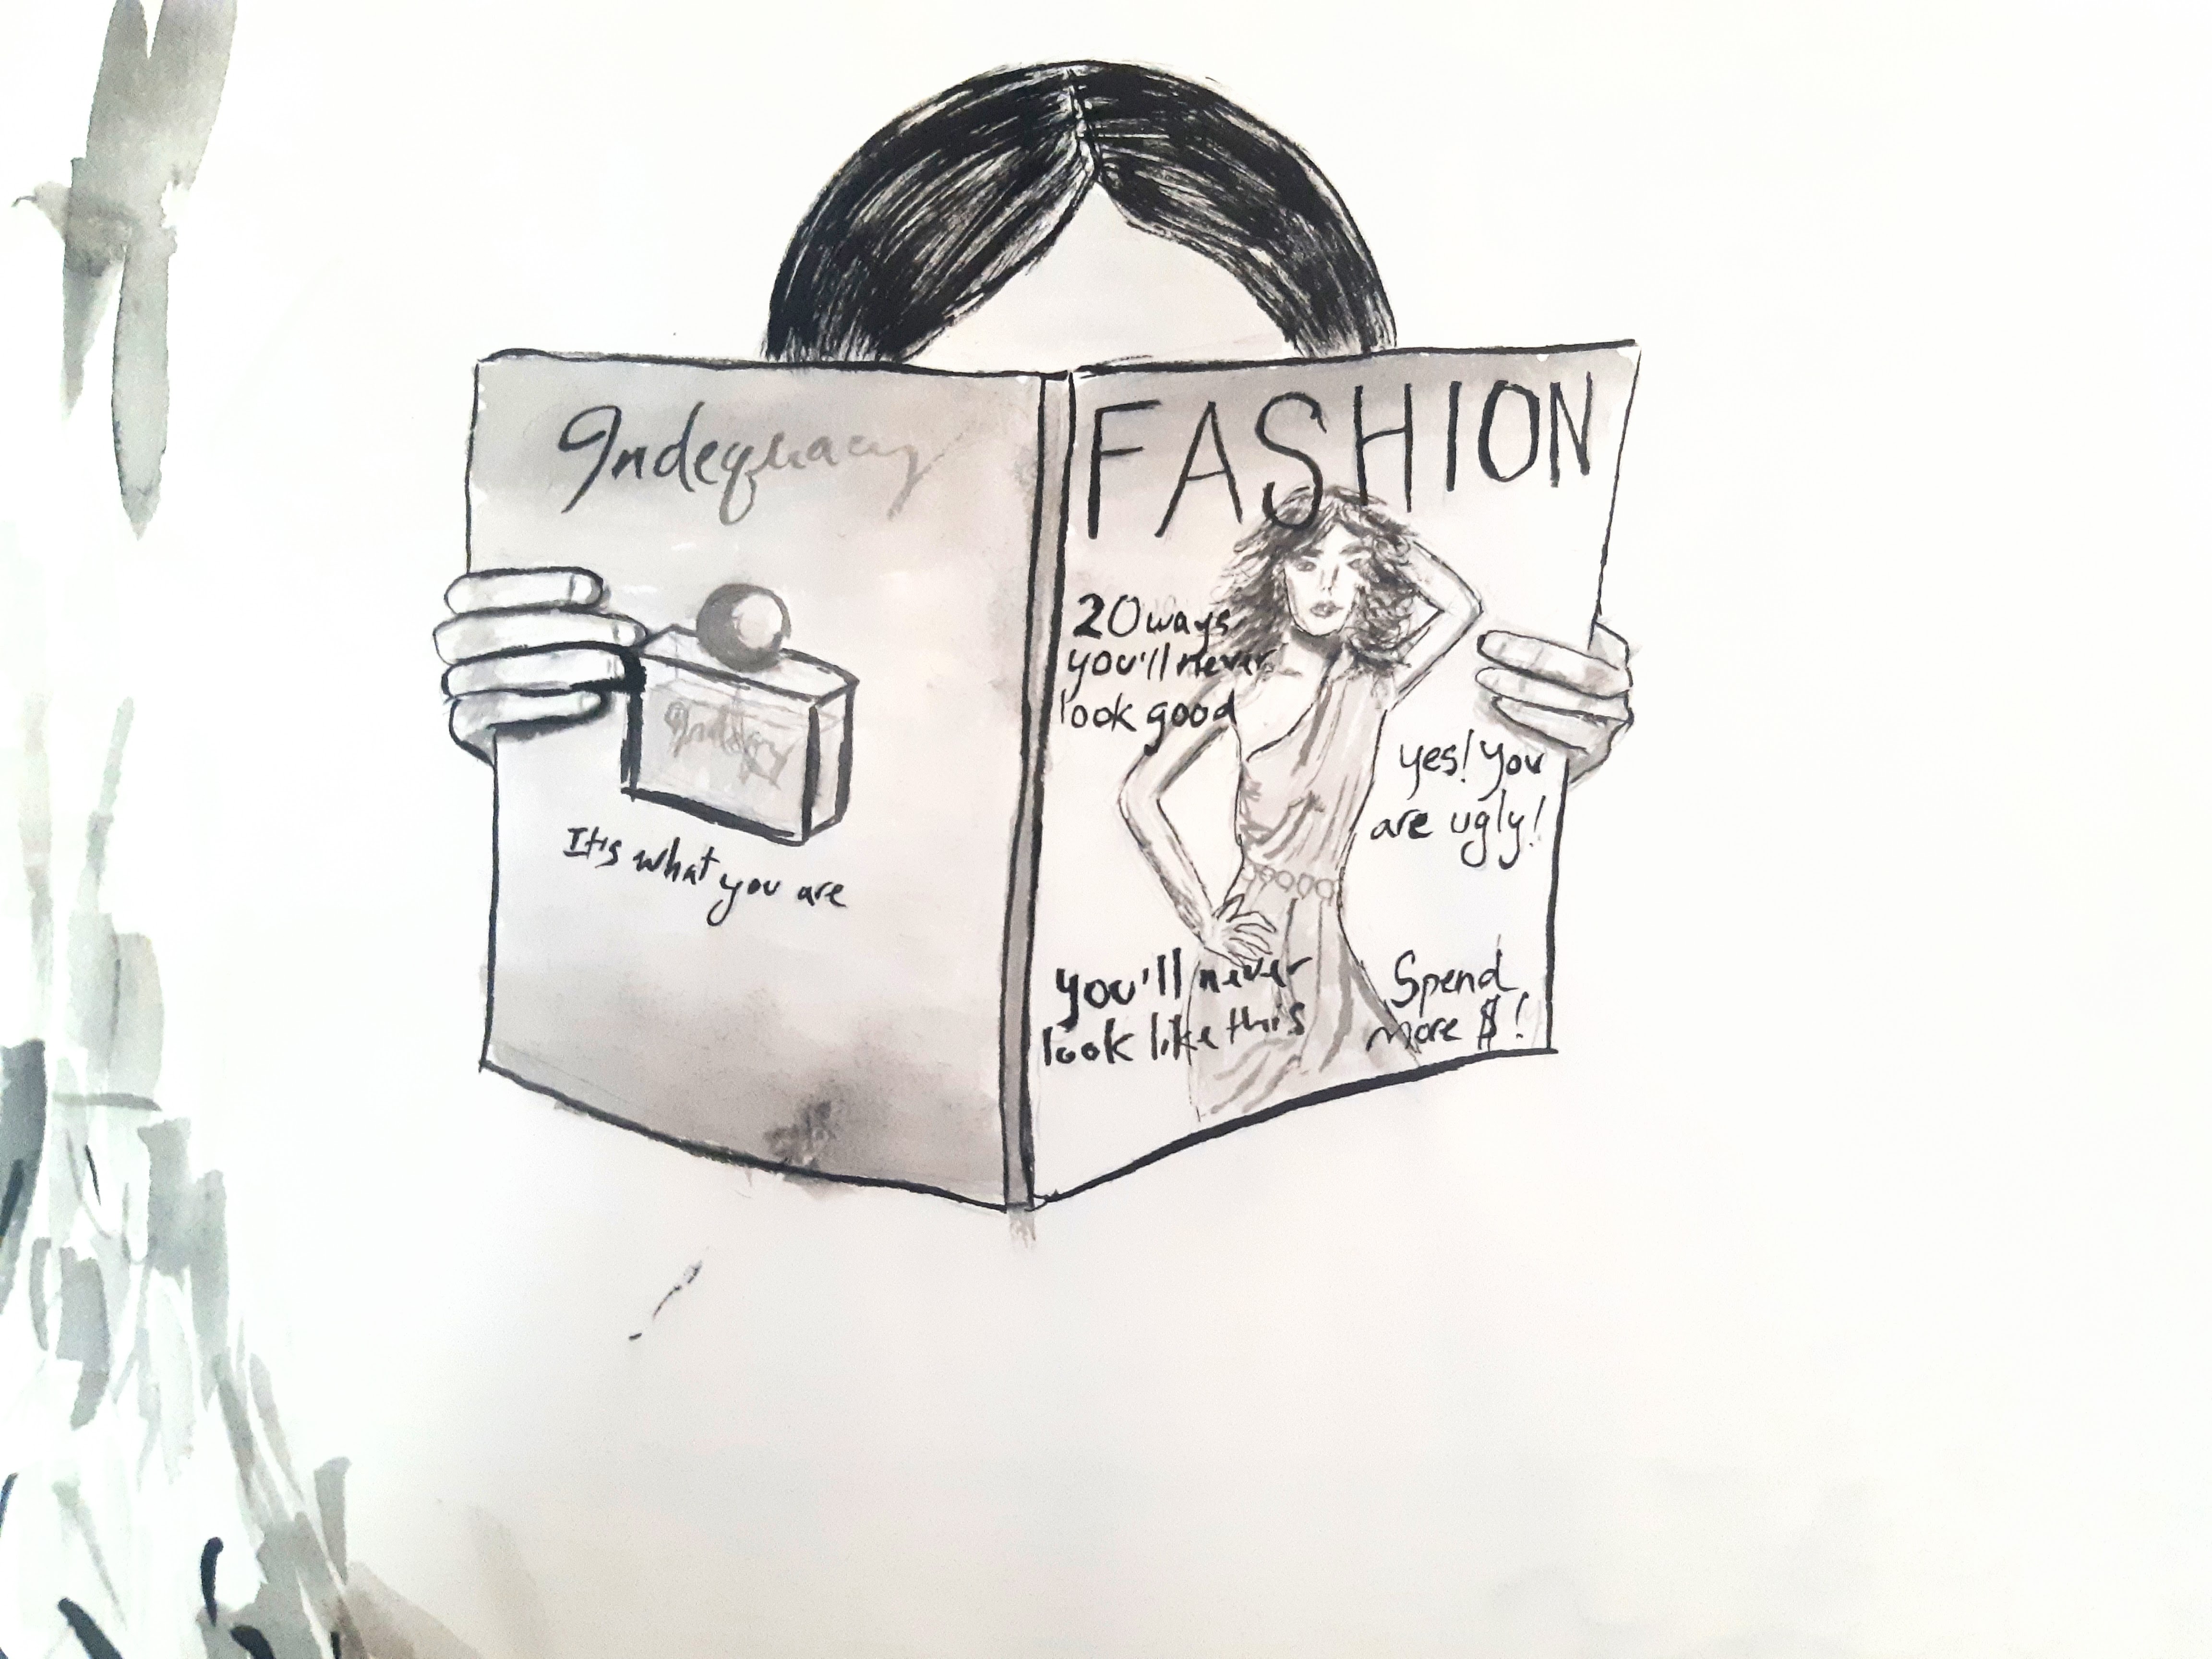 Indequacy
It's what you are
FASHION
20 ways
you'll never
look good
yes! you
are ugly!
you'll never
look like this
Spend
more $!